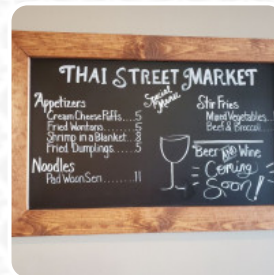 THAI STREET MARKET
Special Menu
Appetizers
Cream Cheese Puffs....5
Fried Wontons........5
Shrimp in a Blanket...8
Fried Dumplings.....5
Noodles
Pad Woon Sen........11
Stir Fries
Mixed Vegetables...
Beef & Broccoli
Beer AND Wine
Coming
Soon!